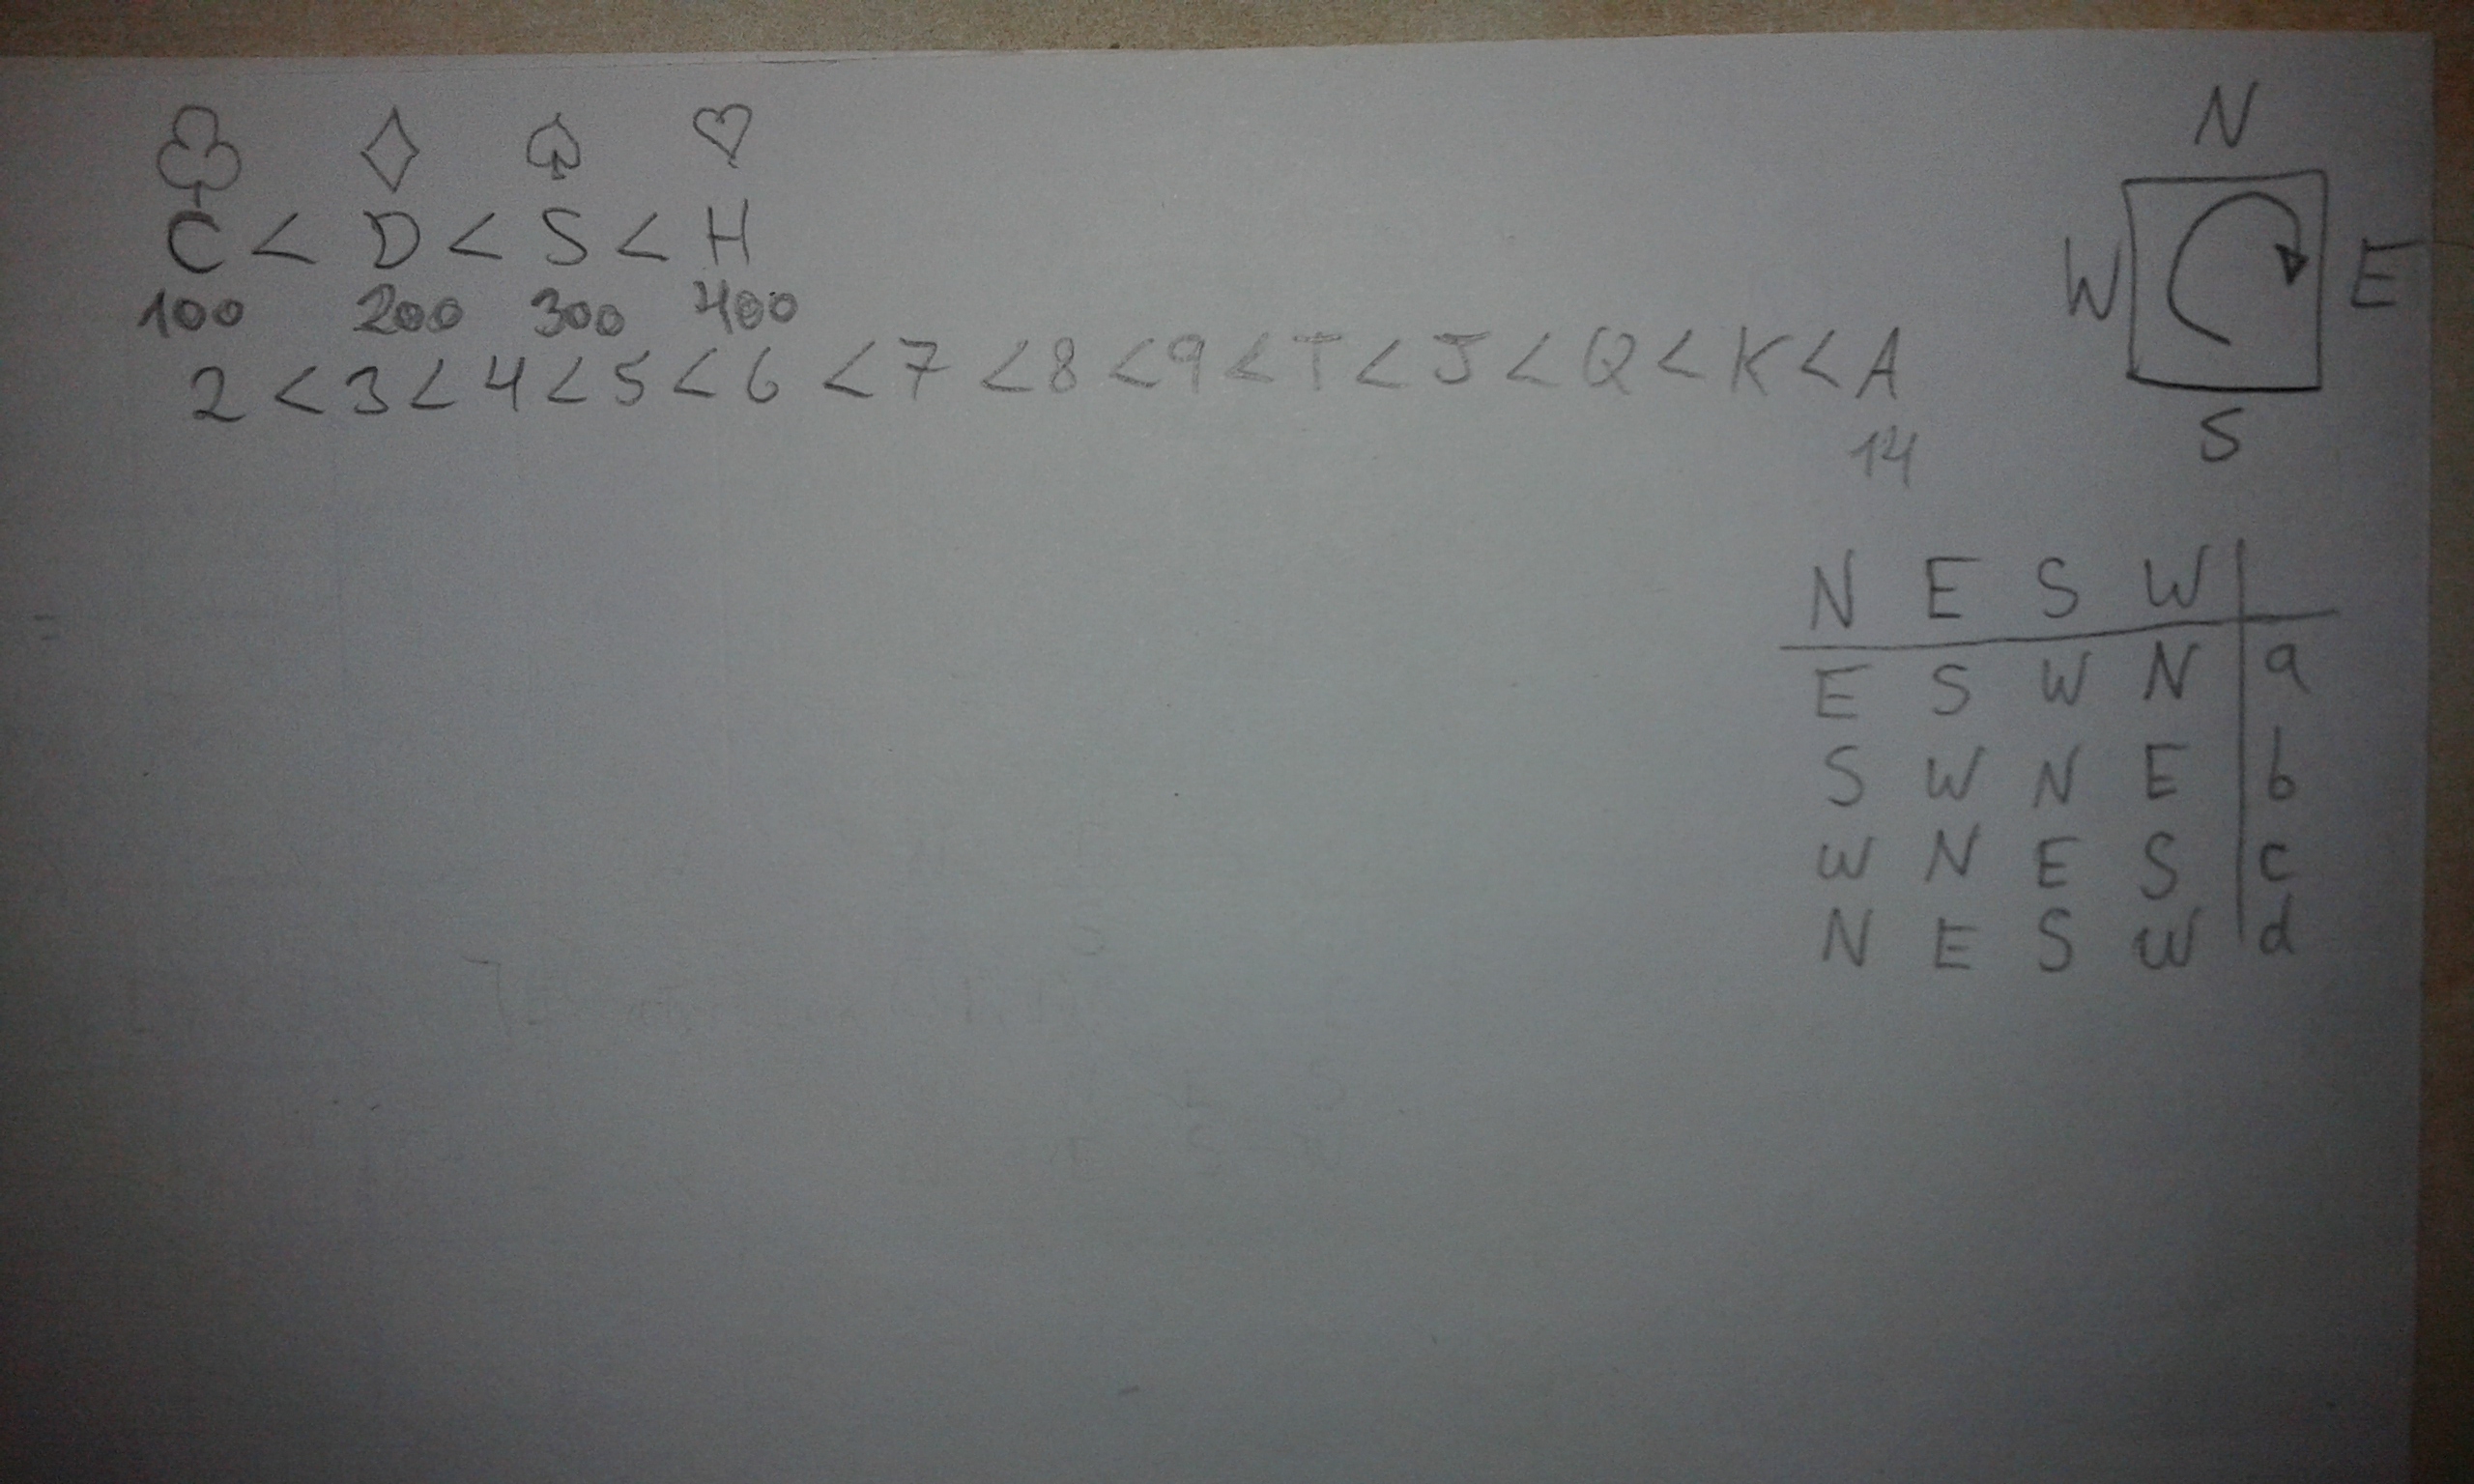 ♣ ♢ ♤ ♡
N
C < D < S < H
100 200 300 400
W E
2 < 3 < 4 < 5 < 6 < 7 < 8 < 9 < T < J < Q < K < A
14
S
N E S W
E S W N a
S W N E b
W N E S c
N E S W d